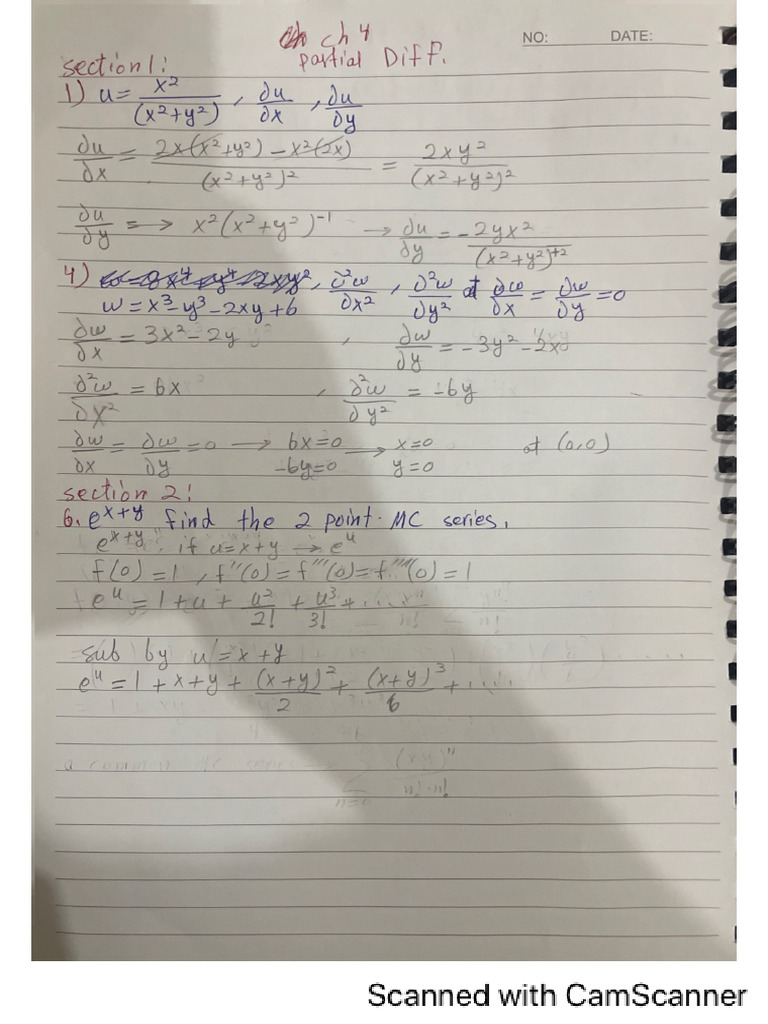 ch 4 NO: DATE:
Partial Diff.
section 1:
1) u = x²/(x²+y²) , ∂u/∂x , ∂u/∂y
∂u/∂x = (2x(x²+y²) - x²(2x))/(x²+y²)² = 2xy²/(x²+y²)²
∂u/∂y => x²(x²+y²)⁻¹ → ∂u/∂y = -2yx²/(x²+y²)⁺²
4) , ∂²w/∂x² , ∂²w/∂y² at ∂w/∂x = ∂w/∂y = 0
w = x³-y³-2xy+6
∂w/∂x = 3x²-2y , ∂w/∂y = -3y²-2x
∂²w/∂x² = 6x , ∂²w/∂y² = -6y
∂w/∂x = ∂w/∂y = 0 → 6x=0 → x=0 at (0,0)
-6y=0 y=0
section 2:
6. e^(x+y) find the 2 point MC series.
e^(x+y) if u=x+y → e^u
f(0) = 1 , f''(0) = f'''(0) = f''''(0) = 1
e^u = 1+u+ u²/2! + u³/3! + ....
sub by u = x+y
e^u = 1+x+y+ (x+y)²/2 + (x+y)³/6 + ....
Scanned with CamScanner